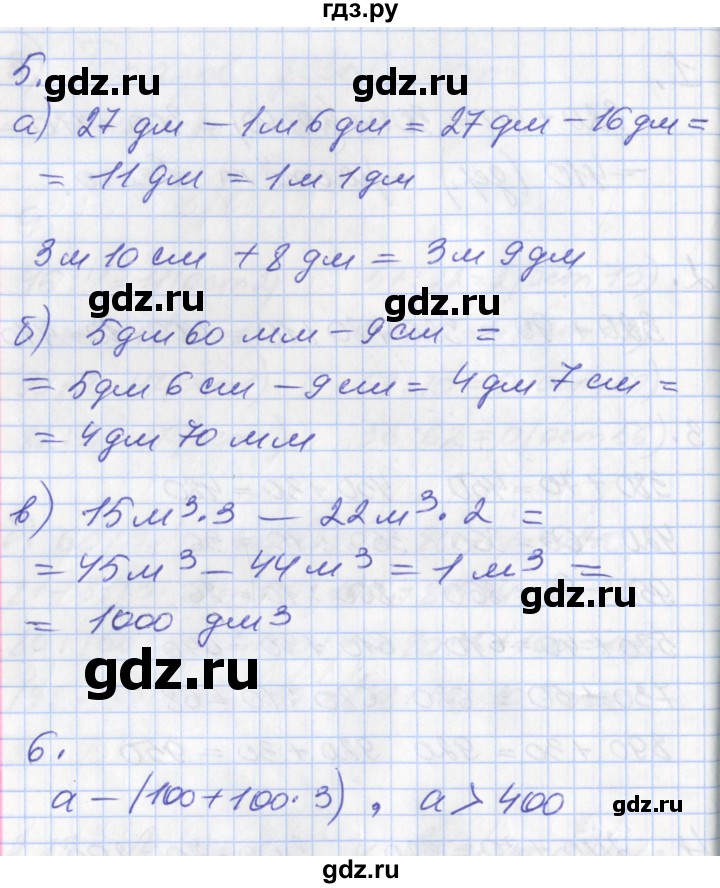 гдз.ру
5.
gdz.ru gdz.ru
а) 27 дм – 1 м 6 дм = 27 дм – 16 дм =
= 11 дм = 1 м 1 дм
3 м 10 см + 8 дм = 3 м 9 дм
gdz.ru gdz.ru
б) 5 дм 60 мм – 9 см =
= 5 дм 6 см – 9 см = 4 дм 7 см =
= 4 дм 70 мм
в) 15 м³ · 3 – 22 м³ · 2 =
= 45 м³ – 44 м³ = 1 м³ =
gdz.ru
= 1000 дм³
gdz.ru
6.
а – (100 + 100 · 3) , а > 400
gdz.ru
gdz.ru